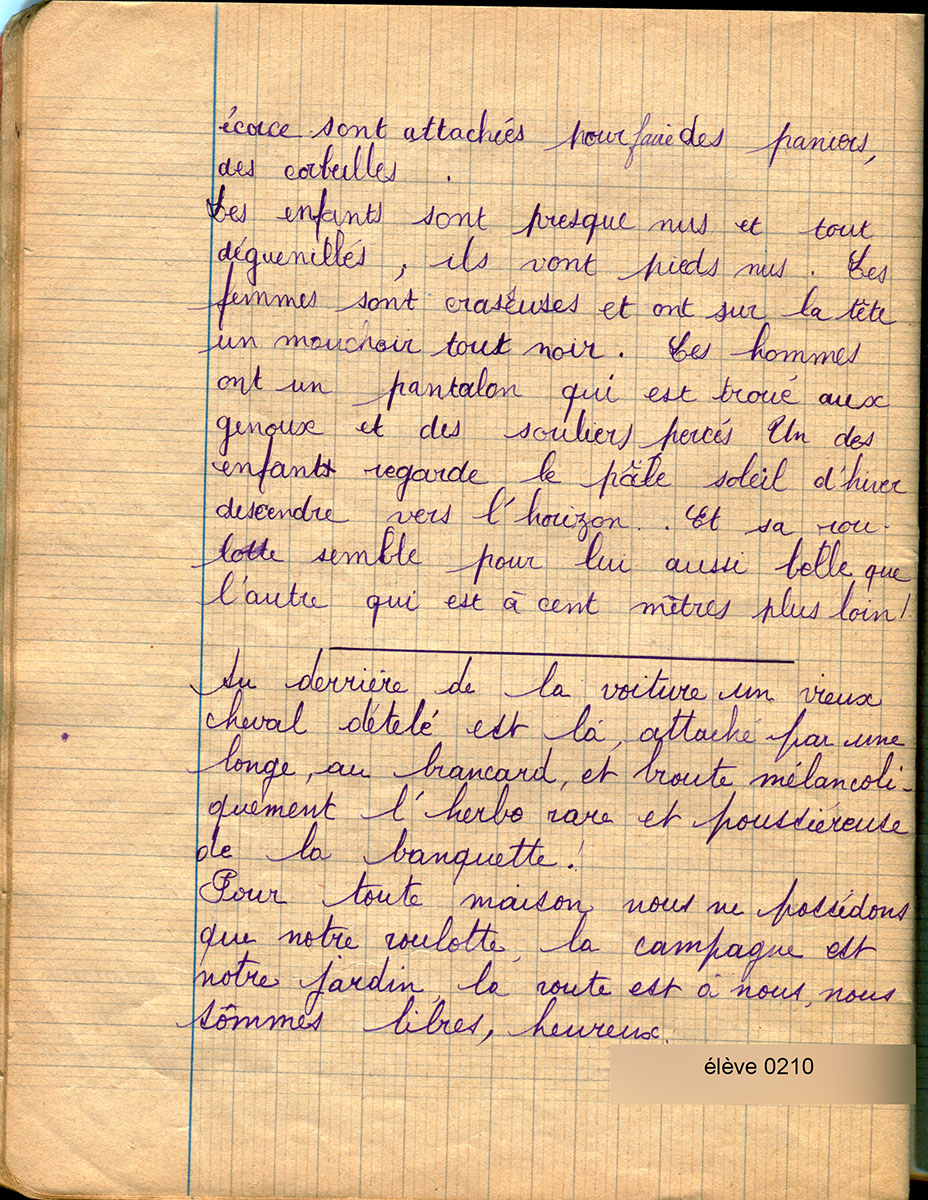 écorce sont attachés pour faire des paniers,
des corbeilles .
Les enfants sont presque nus et tout
déguenillés, ils vont pieds nus. Les
femmes sont craseuses et ont sur la tête
un mouchoir tout noir. Les hommes
ont un pantalon qui est troué aux
genoux et des souliers percés Un des
enfants regarde le pâle soleil d'hiver
descendre vers l'horizon. . Et sa rou-
lotte semble pour lui aussi belle que
l'autre qui est à cent mètres plus loin!
Au derrière de la voiture un vieux
cheval dételé est là, attaché par une
longe, au brancard, et broute mélancoli-
quement l'herbe rare et poussiéreuse
de la banquette!
Pour toute maison nous ne possédons
que notre roulotte, la campagne est
notre jardin, la route est à nous, nous
sômmes libres, heureux.
élève 0210